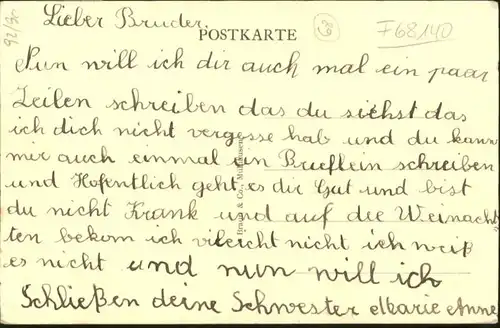 Lieber Bruder.
POSTKARTE
63
F68140
92/Gr
Nun will ich dir auch mal ein paar
Zeilen schreiben das du siehst das
ich dich nicht vergesse hab und du kann
mir auch einmal ein Brieflein schreiben
und Hofentlich geht es dir Gut und bist
du nicht Krank und auf die Weinach
ten bekom ich vileicht nicht ich weiß
es nicht und nun will ich
Schließen deine Schwester Marie Anne
Braun & Co., Mulhausen